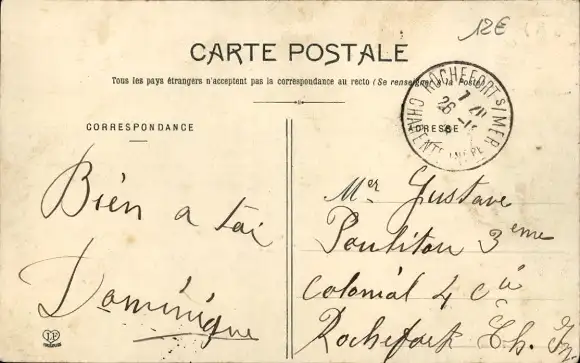 12€
CARTE POSTALE
Tous les pays étrangers n'acceptent pas la correspondance au recto (Se renseigner à la Poste)
ROCHEFORT S/MER
26
CHARENTE
CORRESPONDANCE
ADRESSE
Bien a toi
Dominique
Mer Gustave
3eme
Colonial 4 Cie
Rochefort Ch. Inf